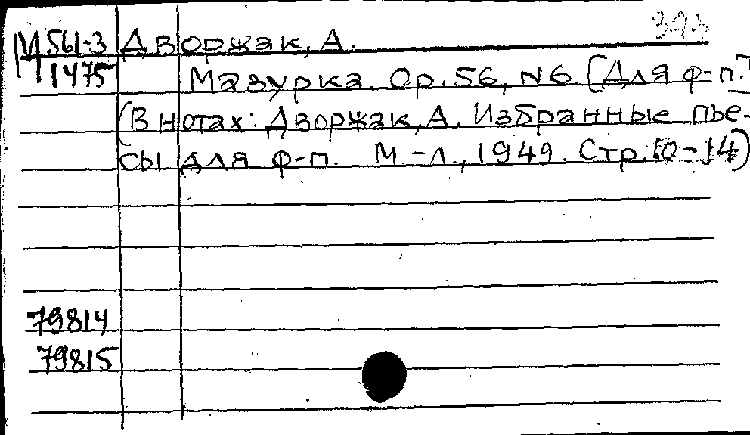 393
М 561-3 Дворжак, А.
1475 Мазурка. Ор. 56, N6 [Для ф-п.]
(В нотах: Дворжак, А. Избранные пье-
сы для ф-п. М-Л., 1949. Стр. 10-14)
79814
79815